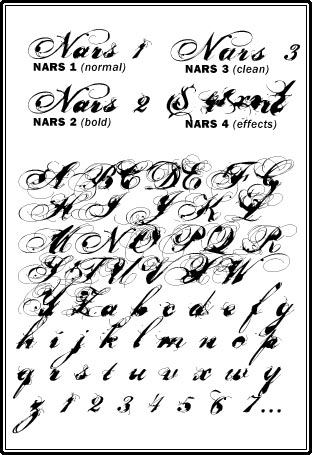 Nars 1 Nars 3
NARS 1 (normal) NARS 3 (clean)
Nars 2
NARS 2 (bold) NARS 4 (effects)
A B C D E F G
H I J K L
M N O P Q R
S T U V X W
Y Z a b c d e f g
h i j k l m n o p
q r s t u v x w y
z 1 2 3 4 5 6 7...